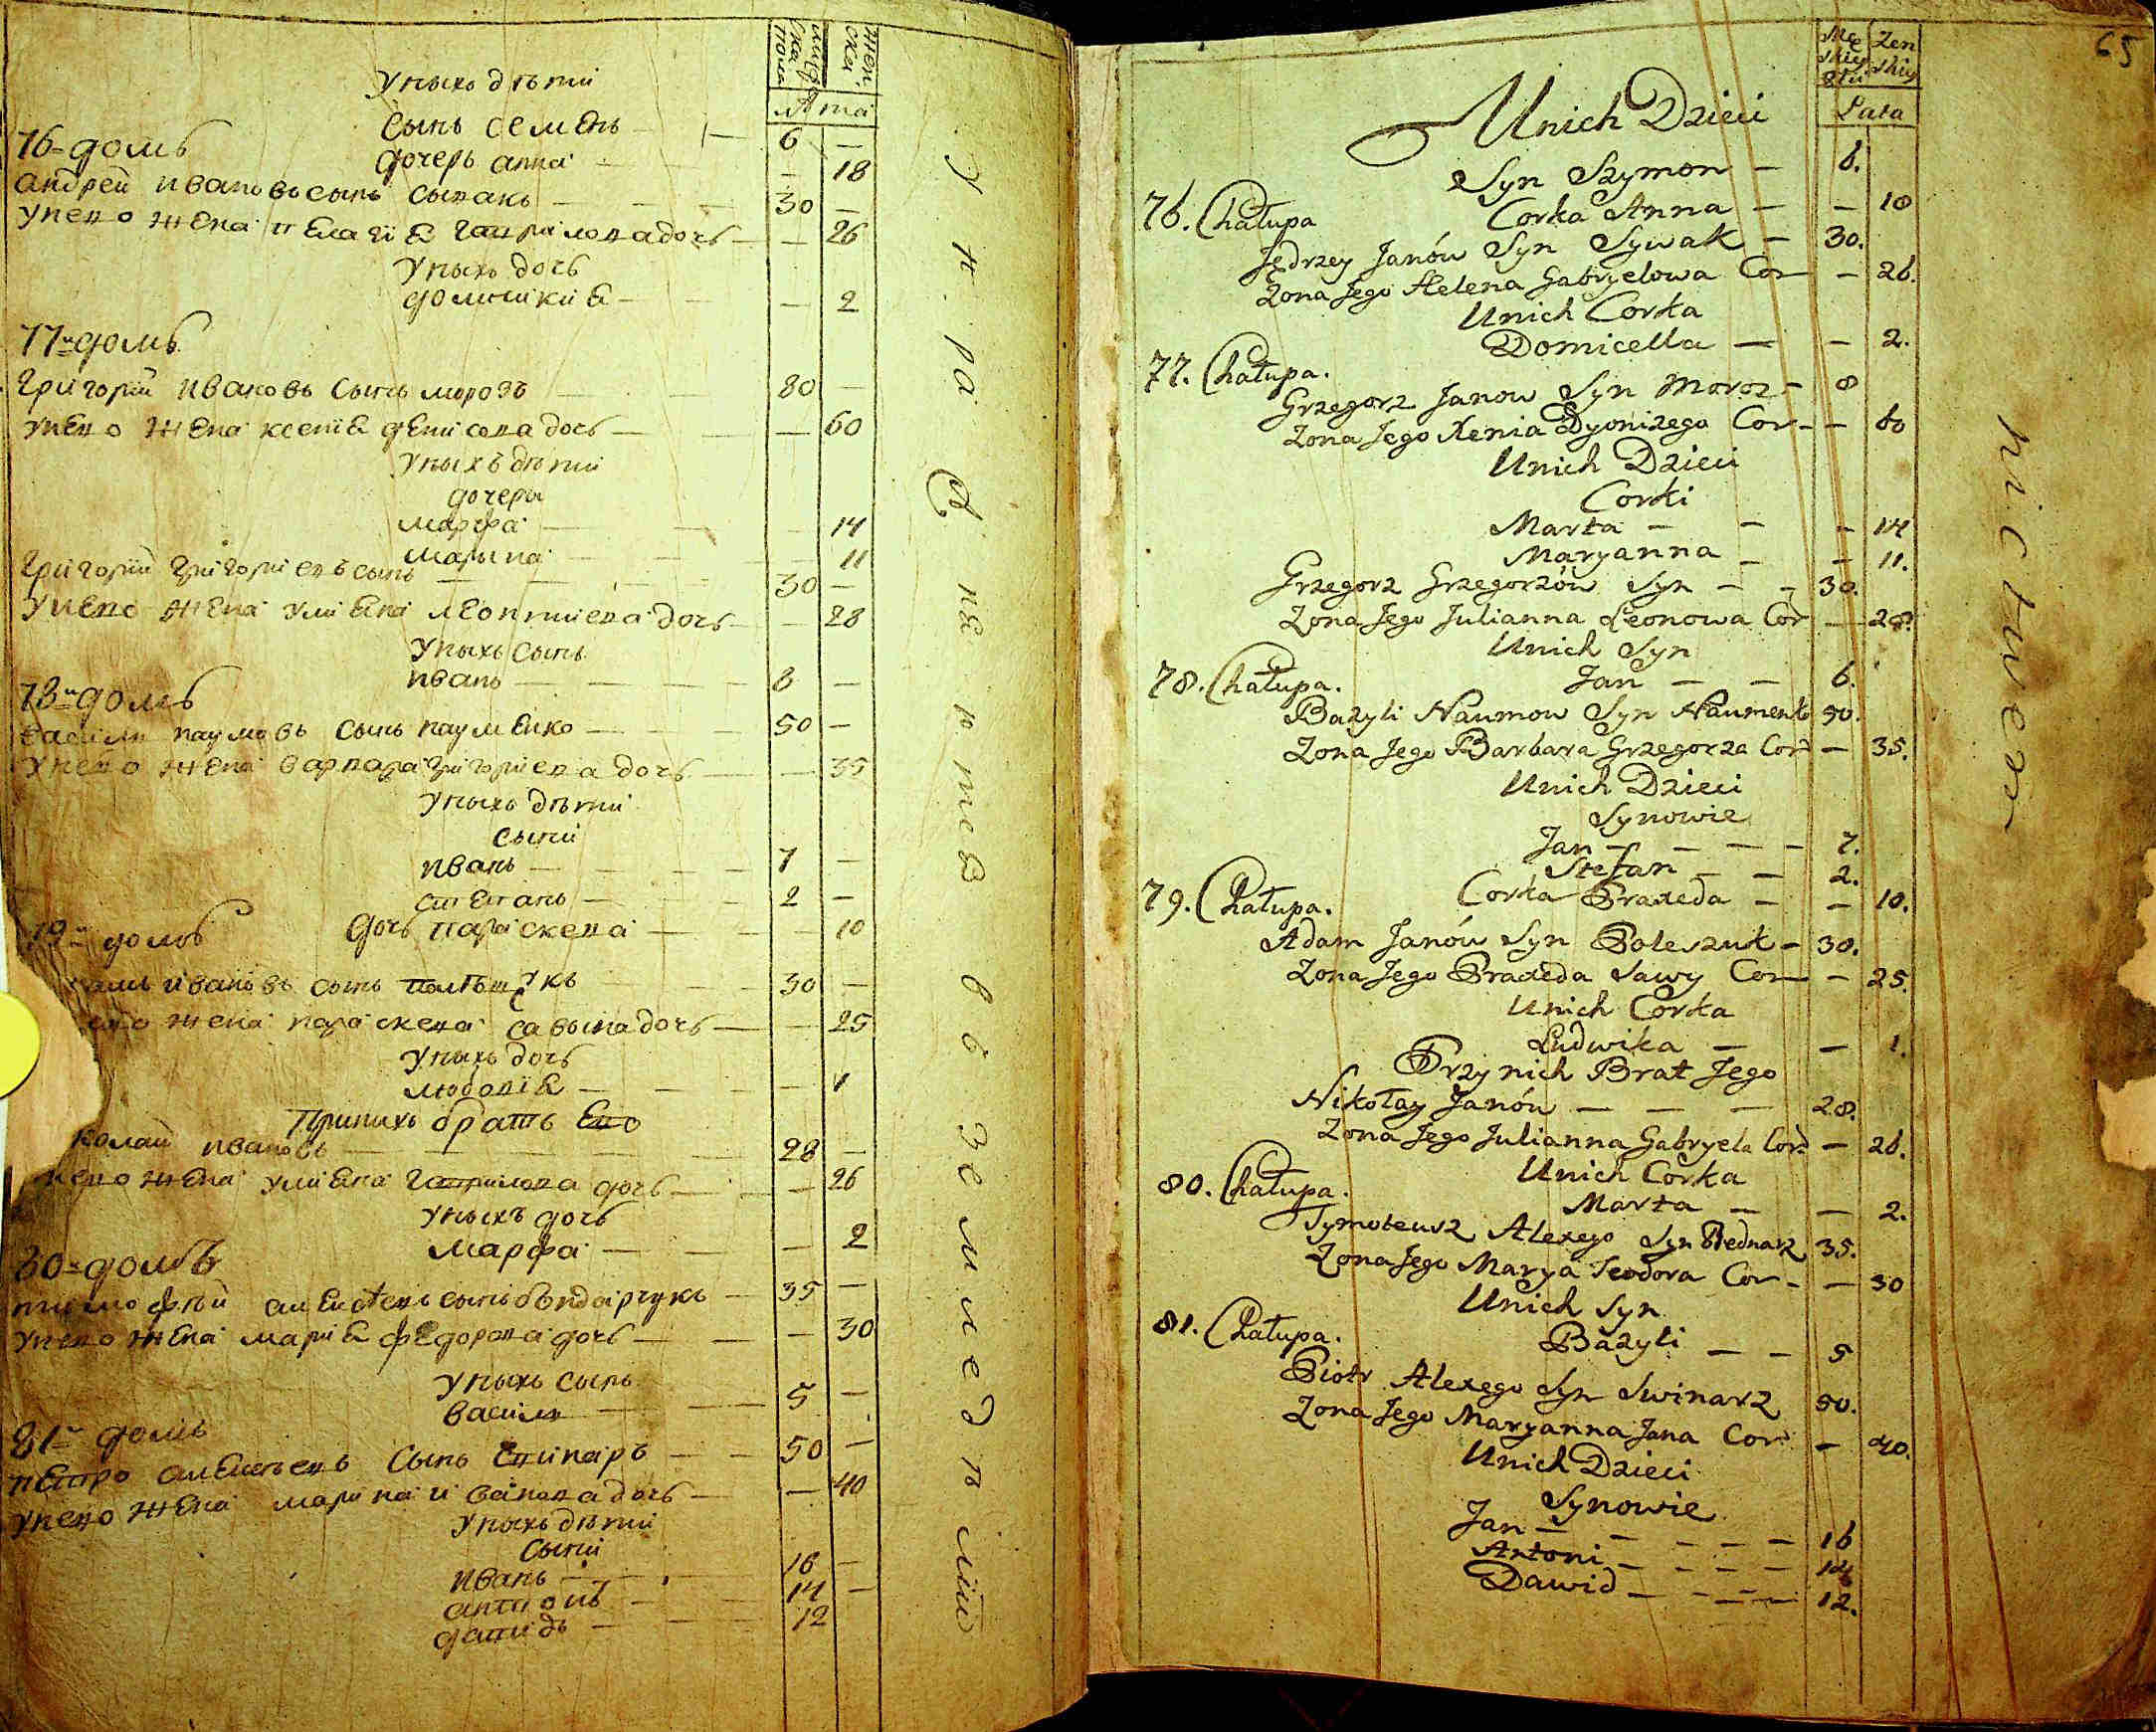 мужеска пола
женска
Лѣта
У ныхъ дѣти
Сынъ Семенъ — 6 —
76 домъ
дочерь анна — — 18
андрей ивановъ сынъ сывакъ — 30 —
У него жена пелагіѧ гаврилова дочь — — 26
У ныхъ дочь
домникиѧ — — 2
77 домъ
григорій ивановъ сынъ морозъ 80 —
У него жена ксеніѧ денисова дочь — — 60
У ныхъ дѣти
дочеры
марфа — — 14
марына — — 11
григорій григоріевъ сынъ — 30 —
У него жена улиѧна леонтиева дочь — — 28
У ныхъ сынъ
иванъ — 6 —
78 домъ
василь наумовъ сынъ науменко — 50 —
У него жена варвара григоріева дочь — — 35
У ныхъ дѣти
сыни
иванъ — 7 —
степанъ — 2 —
79 домъ дочь параскева — — 10
ивановъ сынъ полѣщукъ 30 —
жена параскева савына дочь — — 25
У ныхъ дочь
любовіѧ — — 1
При ныхъ братъ Его
колай ивановъ — 28 —
него жена улиѧна гаврилова дочь — — 26
У ныхъ дочь
марфа — — 2
80 домъ
тимофѣй алексѣевъ сынъ бъндарчукъ — 35 —
У него жена маріѧ федорова дочь — — 30
У ныхъ сынъ
василь — 5 —
81 домъ
петро алексѣевъ сынъ свинаръ — 50 —
У него жена марина иванова дочь — — 40
У ныхъ дѣти
сыни
иванъ — 16 —
антонъ — 14 —
давидъ — 12
65
Męskiey płci
Żenskiey
Lata
Unich Dzieci
Syn Szymon — 6.
76. Chałupa Corka Anna — — 18
Jędrzey Janów Syn Sywak — 30.
Zona Jego Helena Gabryelowa Cor — 26.
Unich Corka
Domicella — — 2.
77. Chałupa.
Grzegorz Janow Syn Moroz — 8
Zona Jego Xenia Dyonizego Cor — — 60
Unich Dzieci
Corki
Marta — — — 14
Maryanna — — 11.
Grzegorz Grzegorzów Syn — — 30.
Zona Jego Julianna Leonowa Cor — 28.
Unich Syn
78. Chałupa. Jan — — 6.
Bazyli Naumow Syn Naumenko 50.
Zona Jego Barbara Grzegorza Cor — 35.
Unich Dzieci
Synowie
Jan — — — — 7.
Stefan — — 2.
79. Chałupa. Corka Praxeda — — 10.
Adam Janów Syn Poleszuk — 30.
Zona Jego Praxeda Sawy Cor — 25.
Unich Corka
Ludwika — — 1.
Przy nich Brat Jego
Nikołay Janów — — — 28.
Zona Jego Julianna Gabryela Cor — 26.
Unich Corka
80. Chałupa. Marta — — 2.
Tymoteusz Alexego Syn Bednarz 35.
Zona Jego Marya Teodora Cor — — 30
Unich Syn
81. Chałupa. Bazyli — — 5
Piotr Alexego Syn Swinarz 50.
Zona Jego Maryanna Jana Cor — 40.
Unich Dzieci
Synowie
Jan — — — — — 16
Antoni — — — — 14
Dawid — — — — 12.